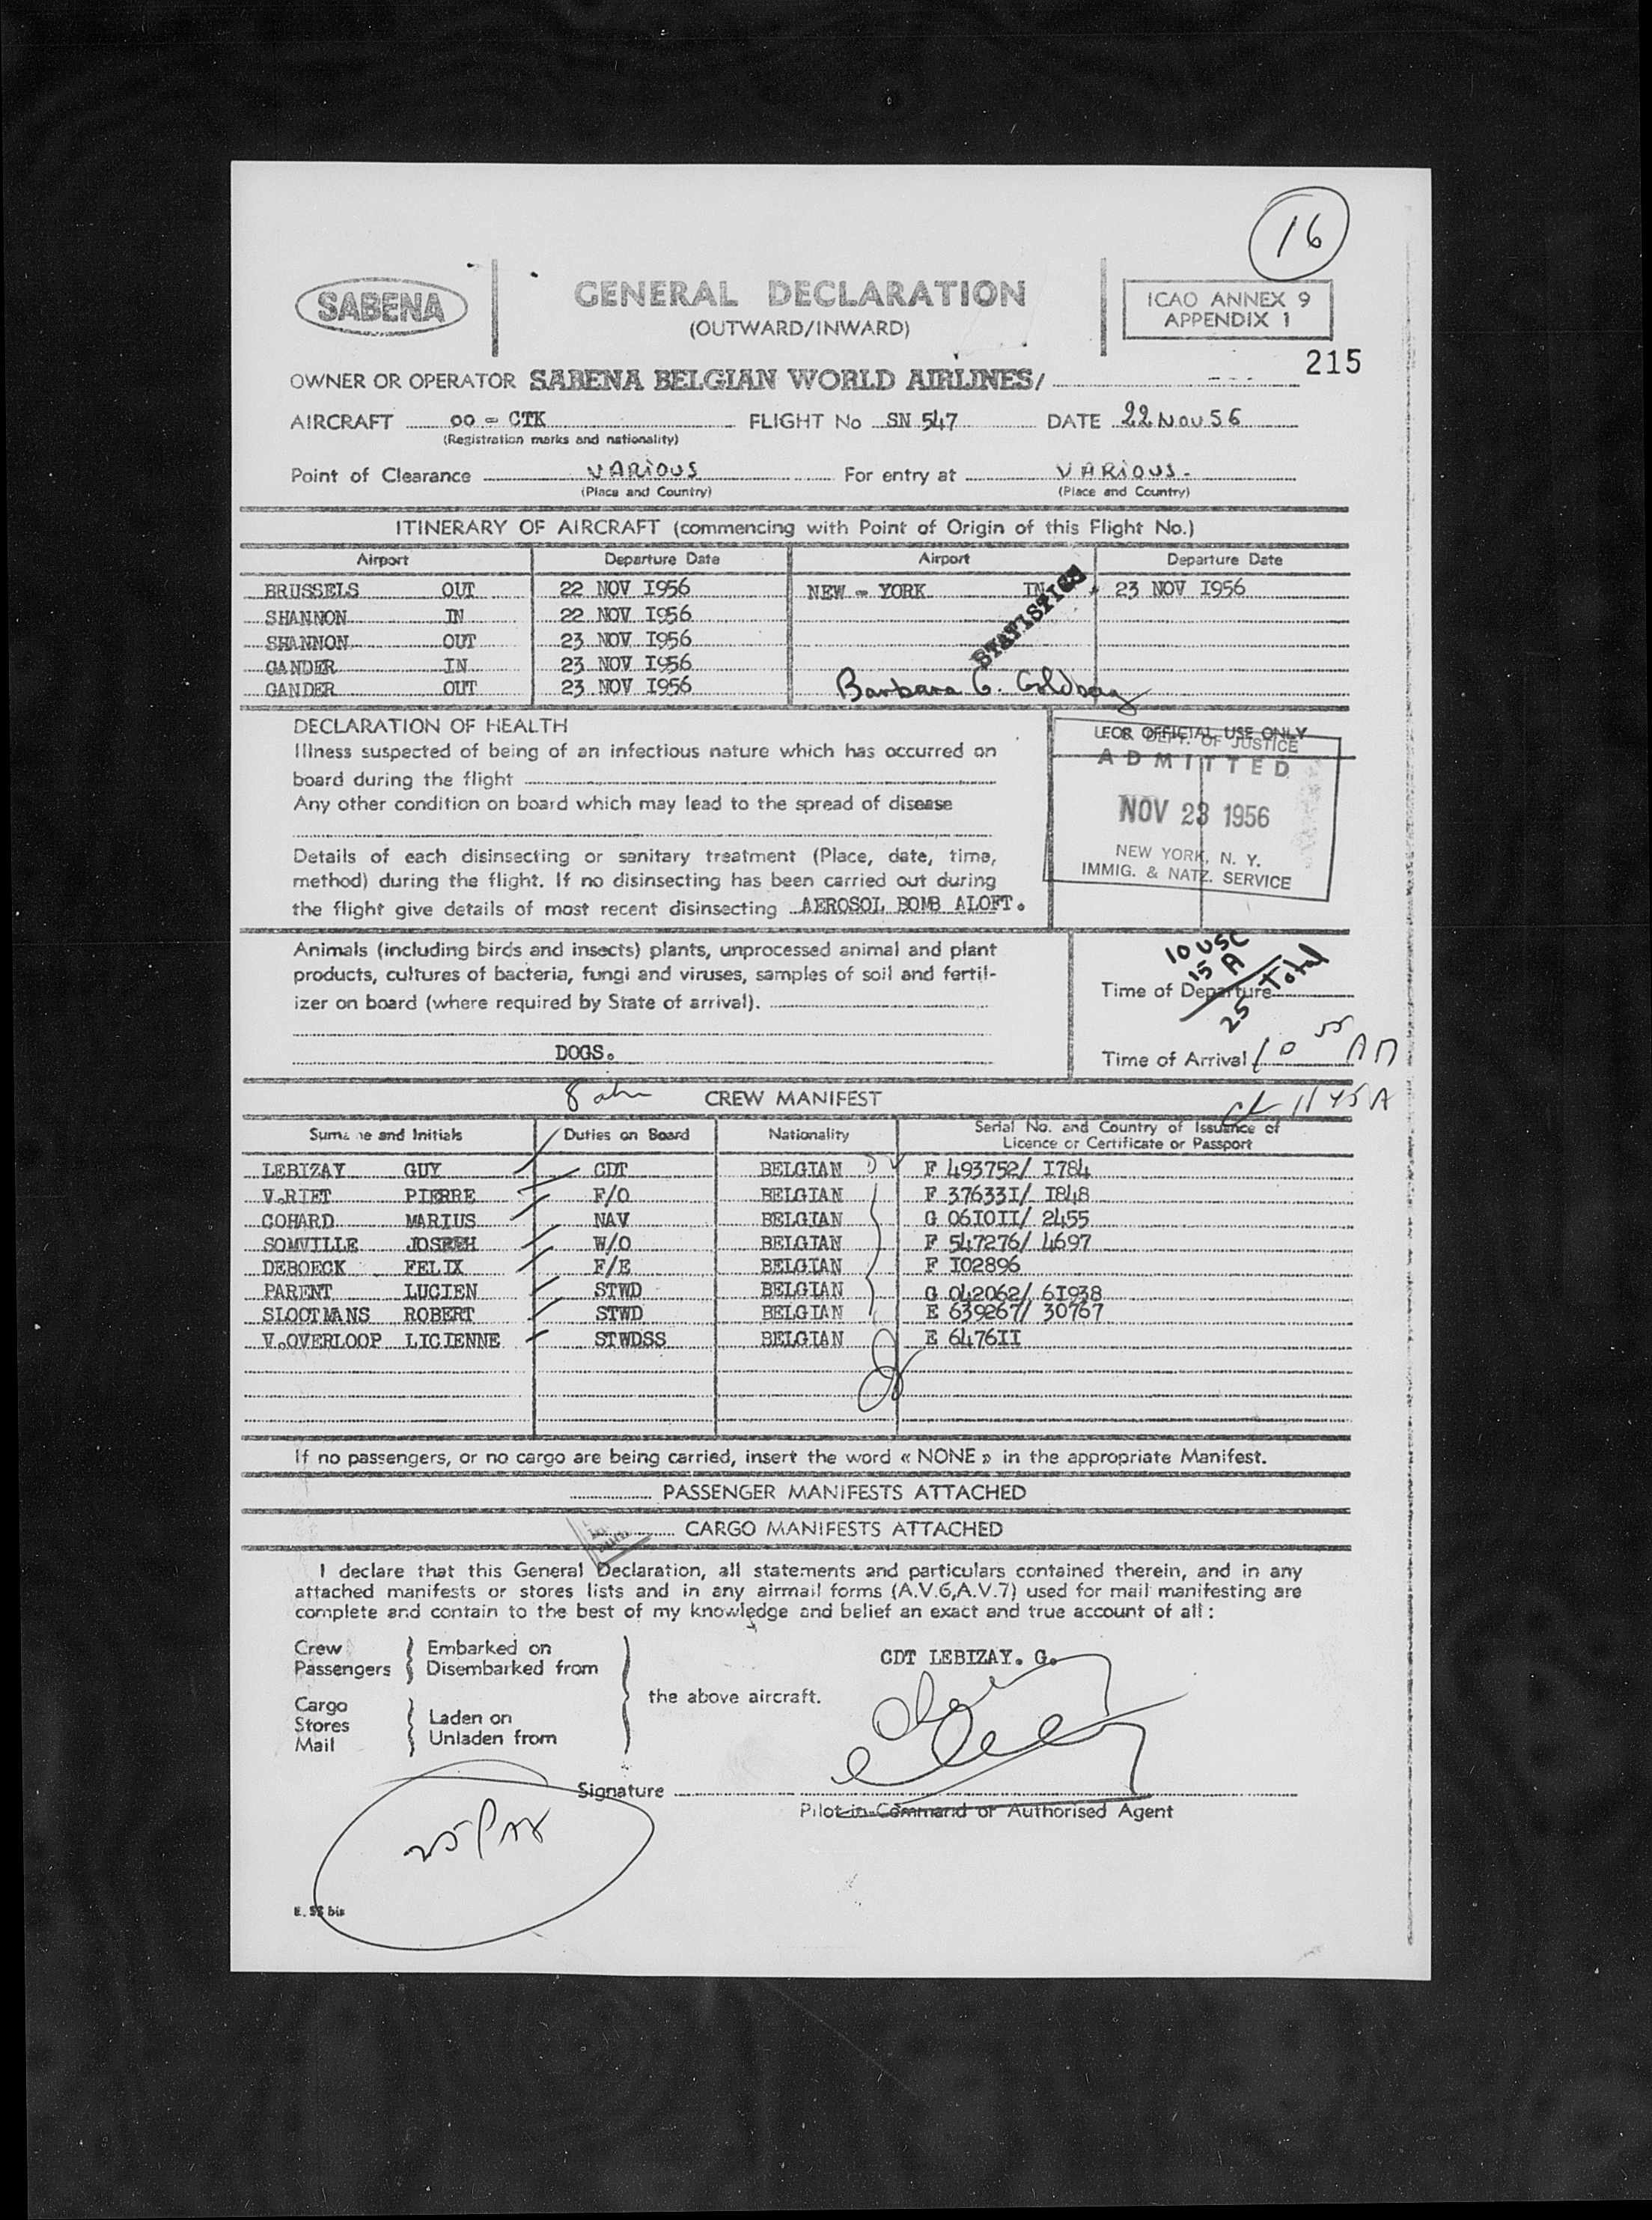 16
SABENA
GENERAL DECLARATION
(OUTWARD/INWARD)
ICAO ANNEX 9
APPENDIX 1
215
OWNER OR OPERATOR SABENA BELGIAN WORLD AIRLINES/
AIRCRAFT OO = CTK FLIGHT No SN 547 DATE 22 Nov 56
(Registration marks and nationality)
Point of Clearance VARIOUS For entry at VARIOUS-
(Place and Country) (Place and Country)
ITINERARY OF AIRCRAFT (commencing with Point of Origin of this Flight No.)
Airport Departure Date Airport Departure Date
BRUSSELS OUT 22 NOV I956 NEW = YORK IN 23 NOV I956
SHANNON IN 22 NOV I956
SHANNON OUT 23 NOV I956
GANDER IN 23 NOV I956
GANDER OUT 23 NOV I956
STATISTICS
Barbara G. Goldberg
DECLARATION OF HEALTH
Illness suspected of being of an infectious nature which has occurred on
board during the flight
Any other condition on board which may lead to the spread of disease
Details of each disinsecting or sanitary treatment (Place, date, time,
method) during the flight. If no disinsecting has been carried out during
the flight give details of most recent disinsecting AEROSOL BOMB ALOFT.
FOR OFFICIAL USE ONLY
DEPT. OF JUSTICE
ADMITTED
NOV 23 1956
NEW YORK, N. Y.
IMMIG. & NATZ. SERVICE
Animals (including birds and insects) plants, unprocessed animal and plant
products, cultures of bacteria, fungi and viruses, samples of soil and fertil-
izer on board (where required by State of arrival).
DOGS.
10 USC
15 A
25 Total
Time of Departure
Time of Arrival 10 55 AM
1145 A
8 CREW MANIFEST
Surname and Initials Duties on Board Nationality Serial No. and Country of Issuance of
Licence or Certificate or Passport
LEBIZAY GUY CDT BELGIAN F 493752/ I784
V.RIET PIERRE F/O BELGIAN F 37633I/ I848
COHARD MARIUS NAV BELGIAN G 06I0II/ 2455
SOMVILLE JOSEPH W/O BELGIAN F 547276/ 4697
DEBOECK FELIX F/E BELGIAN F I02896
PARENT LUCIEN STWD BELGIAN G 042062/ 6I938
SLOOTMANS ROBERT STWD BELGIAN E 639267/ 30767
V.OVERLOOP LICIENNE STWDSS BELGIAN E 6476II
If no passengers, or no cargo are being carried, insert the word « NONE » in the appropriate Manifest.
PASSENGER MANIFESTS ATTACHED
CARGO MANIFESTS ATTACHED
I declare that this General Declaration, all statements and particulars contained therein, and in any
attached manifests or stores lists and in any airmail forms (A.V.6,A.V.7) used for mail manifesting are
complete and contain to the best of my knowledge and belief an exact and true account of all :
Crew Embarked on
Passengers Disembarked from
the above aircraft.
Cargo
Stores Laden on
Mail Unladen from
CDT LEBIZAY. G.
Signature
Pilot-in-Command or Authorised Agent
25 PAX
E. 55 bis